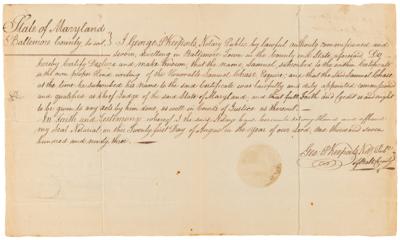 State of Maryland
Baltimore County to wit, } I George P Keeports Notary Public by lawful authority commissioned and
sworn, dwelling in Baltimore Town in the County and State aforesaid Do
hereby Certify Declare and make known, that the name Samuel, subscribed to the within Certificate
is the own proper Hand writing of the Honorable Samuel Chase Esquire; and that the said Samuel Chase
at the time he subscribed his name to the said Certificate was lawfully and duly appointed commissioned
and qualified as Chief Judge of the said State of Maryland, and that full Faith and Credit is and ought
to be given to any acts by him done, as well in Courts of Justice as thereout.
In Faith and Testimony whereof I the said Notary have hereunto set my Hand and affixed
my Seal Notarial, on this Twenty first Day of August in the year of our Lord, one thousand seven
hundred and ninety three.
Geo. P Keeports Not. Pub.
of Balt. County